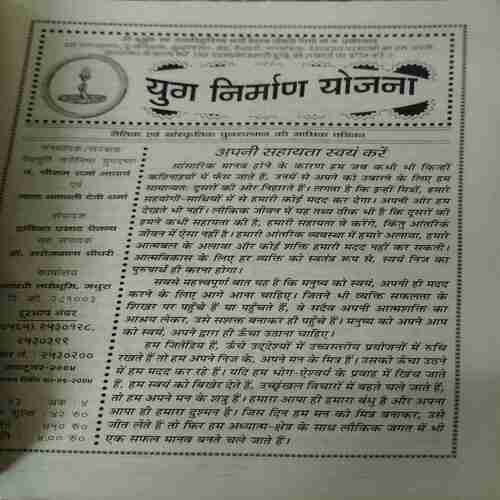 युग निर्माण योजना
नैतिक एवं सांस्कृतिक पुनरुत्थान की मासिक पत्रिका
संस्थापक/संरक्षक
वेदमूर्ति तपोनिष्ठ युगदृष्टा
पं. श्रीराम शर्मा आचार्य
एवं
माता भगवती देवी शर्मा
संपादक
द्वारिका प्रसाद चैतन्य
सह संपादक
कार्यालय
गायत्री तपोभूमि, मथुरा
दूरभाष नंबर
२५३०१२८,
२५३०३९९
२५३०२००
अपनी सहायता स्वयं करें
सांसारिक मानव होने के कारण हम जब कभी भी किन्हीं
कठिनाइयों में फँस जाते हैं, उनमें से अपने को उबारने के लिए हम
सामान्यतः दूसरों की ओर निहारते हैं। लगता है कि इन्हीं मित्रों, हमारे
सहयोगी-साथियों में से हमारी कोई मदद कर देगा। अपनी ओर हम
देखते भी नहीं। लौकिक जीवन में यह तथ्य ठीक भी है कि दूसरों की
हमने कभी सहायता की है, हमारी सहायता वे करेंगे, किंतु आंतरिक
जीवन में ऐसा नहीं है। हमारी आंतरिक व्यवस्था में हमारे अलावा, हमारे
आत्मबल के अलावा और कोई शक्ति हमारी मदद नहीं कर सकती।
आत्मविकास के लिए हर व्यक्ति को स्वतंत्र रूप से, स्वयं निज का
पुरुषार्थ ही करना होगा।
सबसे महत्त्वपूर्ण बात यह है कि मनुष्य को स्वयं, अपनी ही मदद
करने के लिए आगे आना चाहिए। जितने भी व्यक्ति सफलता के
शिखर पर पहुँचे हैं या पहुँचते हैं, वे सदैव अपनी आत्मशक्ति का
आश्रय लेकर, उसे सशक्त बनाकर ही पहुँचे हैं। मनुष्य को अपने आप
को स्वयं, अपने द्वारा ही ऊँचा उठाना चाहिए।
हम जितेंद्रिय हैं, ऊँचे उद्देश्यों में उच्चस्तरीय प्रयोजनों में रुचि
रखते हैं तो हम अपने निज के, अपने मन के मित्र हैं। उसको ऊँचा उठाने
में हम मदद कर रहे हैं। यदि हम भोग-ऐश्वर्य के प्रवाह में खिंच जाते
हैं, हम स्वयं को बिखेर देते हैं, उच्छृंखल विचारों में बहते चले जाते हैं,
तो हम अपने मन के शत्रु हैं। हमारा आपा ही हमारा बंधु है और अपना
आपा ही हमारा दुश्मन है। जिस दिन हम मन को मित्र बनाकर, उसे
जीत लेते हैं तो फिर हम अध्यात्म-क्षेत्र के साथ लौकिक जगत में भी
एक सफल मानव बनते चले जाते हैं।